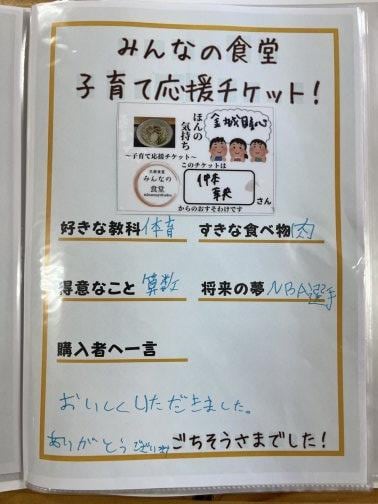 みんなの食堂
子育て応援チケット!
ほんの
気持ち
~子育て応援チケット~
このチケットは
みんなの
食堂
さん
からのおすそわけです
好きな教科 体育
すきな食べ物 肉
得意なこと 算数
将来の夢 NBA選手
購入者へ一言
おいしくいただきました。
ありがとうございます
ごちそうさまでした!